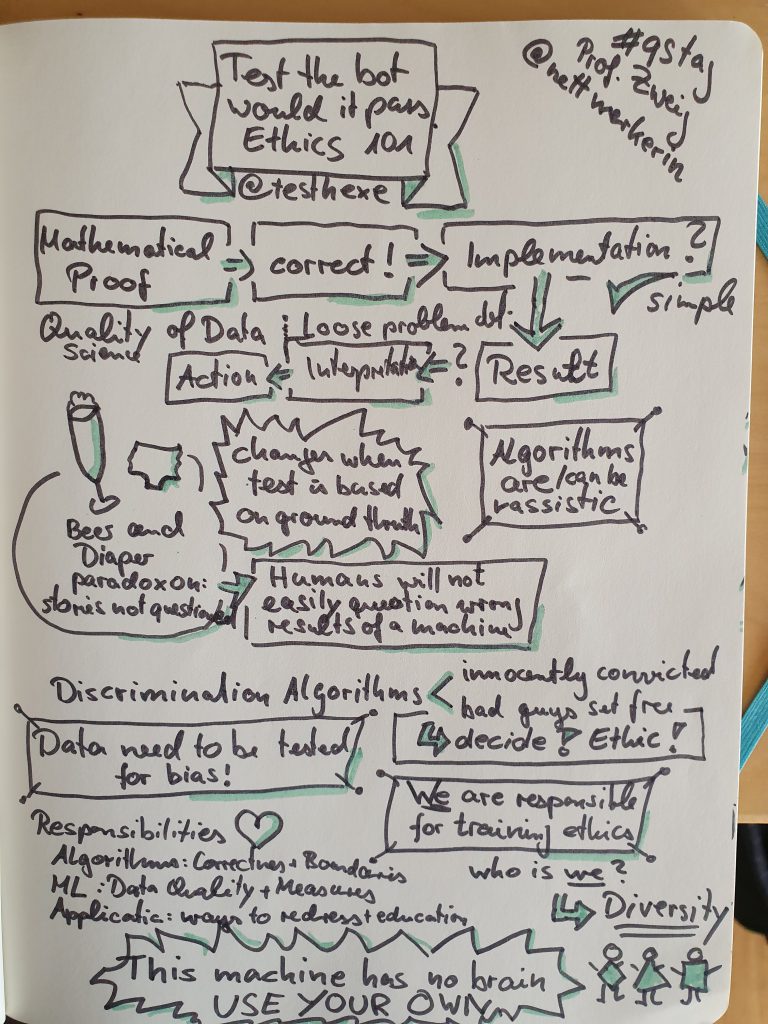 Test the bot
would it pass
Ethics 101
@testhexe
#qstag
Prof. Zweig
@nettwerkerin
Mathematical
Proof
correct!
Implementation?
simple
Quality of Data
Science
Loose problem def.
Action
Interpretation
?
Result
changes when
test is based
on ground thruth
Algorithms
are/can be
rassistic
Beer and
Diaper
paradoxon:
stories not questioned
Humans will not
easily question wrong
results of a machine
Discrimination Algorithms
innocently convicted
bad guys set free
decide? Ethic!
Data need to be tested
for bias!
We are responsible
for training ethics
who is we?
Diversity
Responsibilities
Algorithms: Correctnes + Boundaris
ML: Data Quality + Measures
Applicatio: ways to redress + education
This machine has no brain
USE YOUR OWN